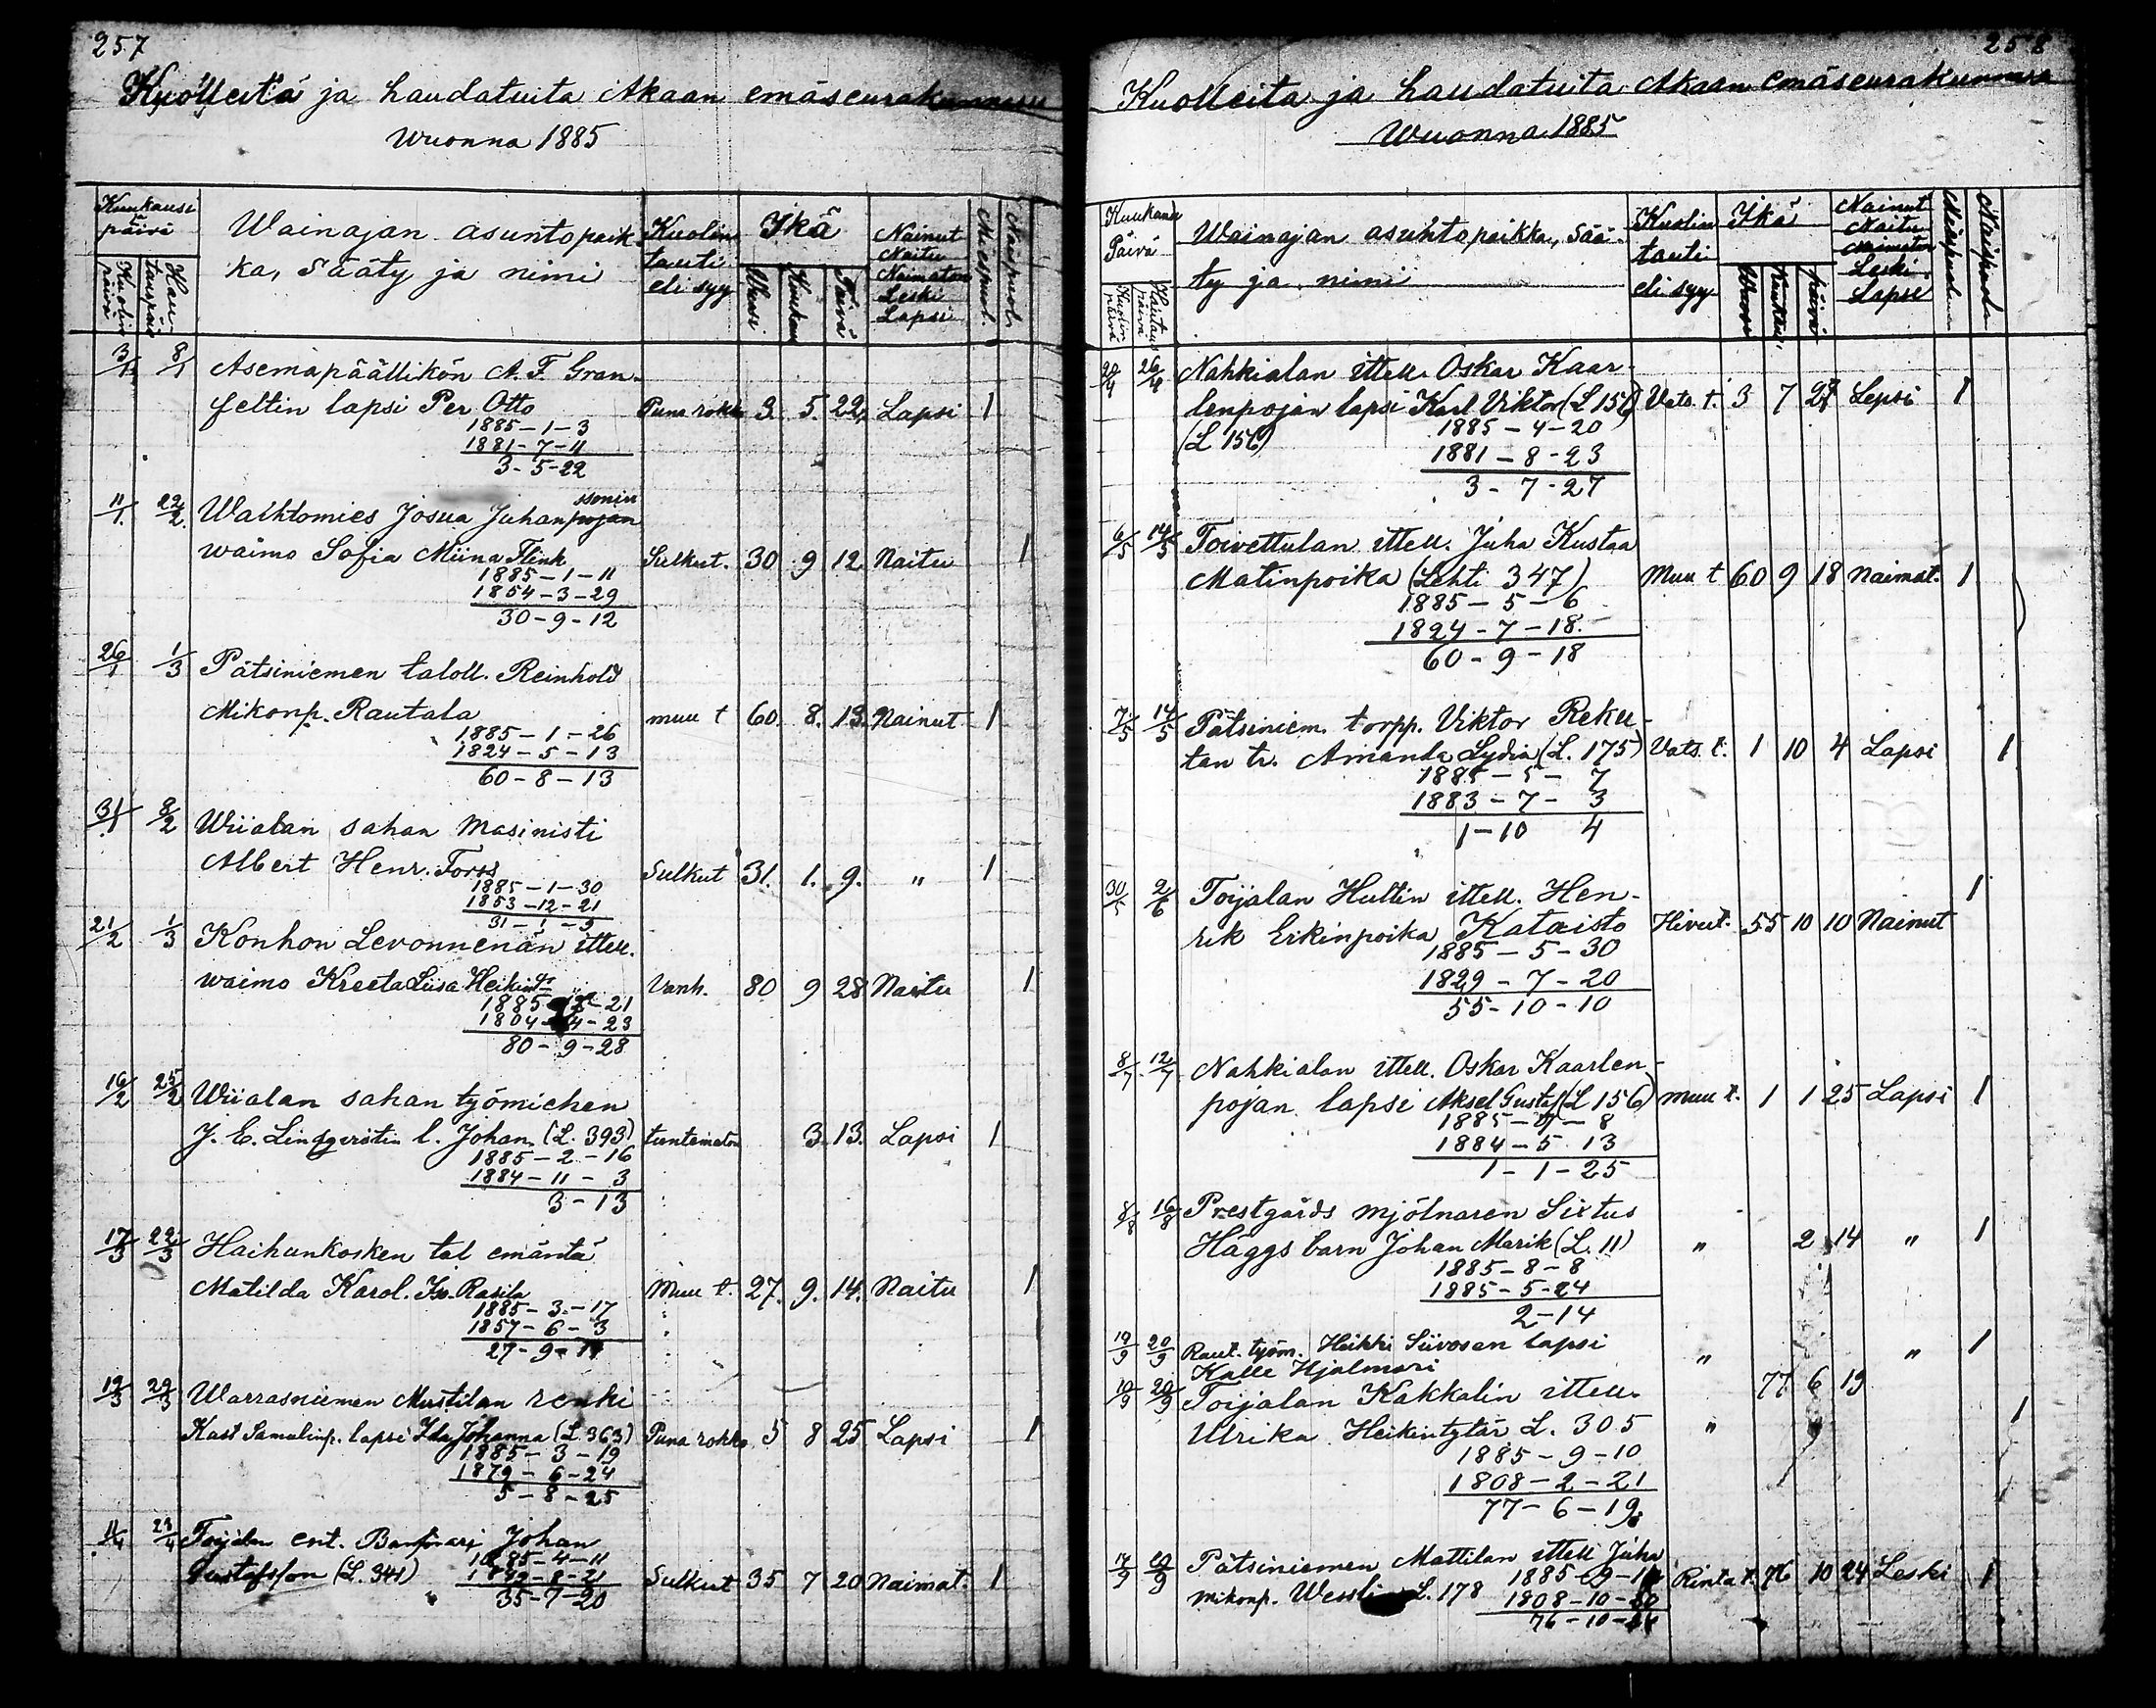 257
Kuolleita ja haudatuita Akaan emäseurakunnassa
Wuonna 1885
Kuukausi ja päivä
Kuolin päivä
Hautauspäiv
Wainajan asuntopaik
ka, Sääty ja nimi
Kuolin
tauti
eli syy
Ikä
Wuosi
Kuukausi
Päivä
Nainut
Naitu
Naimaton
Leski
Lapsi
Miespuol.
Naispuol.
3/1 8/1 Asemapäällikön A. F. Gran-
feltin lapsi Per Otto Puna rokko 3. 5. 22. Lapsi 1
1885-1-3
1881-7-11
3-5-22
11/1. 22/2. Waihtomies Josua Juhanpojan
ssonin
waimo Sofia Miina Flink Sulkut. 30 9 12 Naitu 1
1885-1-11
1854-3-29
30-9-12
26/1 1/3 Pätsiniemen taloll. Reinhold
Mikonp. Rautala muu t 60. 8. 13. Nainut 1
1885-1-26
1824-5-13
60-8-13
31/1 8/2 Wiialan sahan Masinisti
Albert Henr. Forss Sulkut 31. 1. 9. " 1
1885-1-30
1853-12-21
31-1-9
21/2 1/3 Konhon Levonnenän ittell.
waimo Kreeta Liisa Heikint. Vanh. 80 9 28 Naitu 1
1885-2-21
1804-4-23
80-9-28
16/2 25/2 Wiialan sahan työmiehen
J. E. Lindqvistin l. Johan (L. 393) tuntematon 3. 13. Lapsi 1
1885-2-16
1884-11-3
3-13
17/3 22/3 Haihunkosken tal emäntä
Matilda Karol. Rasila Muu t. 27. 9. 14. Naitu 1
1885-3-17
1857-6-3
27-9-14
19/3 29/3 Warrasniemen Mustilan renki
Kust Samulinp. lapsi Ida Johanna (L. 363) Puna rokko 5 8 25 Lapsi 1
1885-3-19
1879-6-24
5-8-25
11/4 23/4 Toijalan ent. Johan
Gustafsson (L. 341) Sulkut 35 7 20 Naimat. 1
1885-4-11
1849-8-21
35-7-20
258
Kuolleita ja haudatuita Akaan emäseurakunnassa
Wuonna 1885
Kuukausi
Päivä
Kuolin päivä
Hautaus päivä
Wainajan asuntopaikka, Sää-
ty ja nimi
Kuolin
tauti
eli syy
Ikä
Wuosi
Kuukausi
Päivä
Nainut
Naitu
Naimaton
Leski
Lapsi
Miespuolin
Naispuolin
20/4 26/4 Nahkialan ittell. Oskar Kaar-
lenpojan lapsi Karl Viktor (L 156) Vats. t. 3 7 27 Lapsi 1
(L 156) 1885-4-20
1881-8-23
3-7-27
6/5 14/5 Toivettulan ittell. Juha Kustaa
Matinpoika (Lehti 347) Muu t 60 9 18 Naimat. 1
1885-5-6
1824-7-18
60-9-18
7/5 14/5 Pätsiniem. torpp. Viktor Reku-
tan tr. Amanda Lydia (L. 175) Vats. t. 1 10 4 Lapsi 1
1885-5-7
1883-7-3
1-10 4
30/5 2/6 Toijalan Hultin ittell. Hen-
rik Erkinpoika Kataisto Hivut. 55 10 10 Nainut 1
1885-5-30
1829-7-20
55-10-10
8/7 12/7 Nahkialan ittell. Oskar Kaarlen-
pojan lapsi Aksel Gustaf (L 156) muu t. 1 1 25 Lapsi 1
1885-7-8
1884-5 13
1-1-25
8/8 16/8 Prestgårds mjölnaren Sixtus
Häggs barn Johan Marik (L. 11) " 2 14 " 1
1885-8-8
1885-5-24
2-14
19/9 20/9 Raut. työm. Heikki Siivosen lapsi
Kalle Hjalmari " " 1
10/9 20/9 Toijalan Kakkalin ittell. 77 6 19
Ulrika Heikintytär L. 305 " 1
1885-9-10
1808-2-21
77-6-19
17/9 20/9 Pätsiniemen Mattilan ittell Juha
Mikonp. L. 178 Rinta t. 76 10 24 Leski 1
1885-9-14
1808-10-20
76-10-24